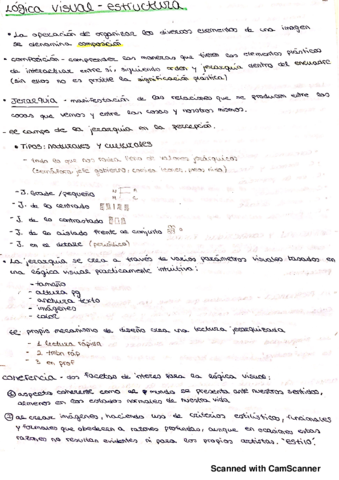 Lógica visual - estructura
• La operación de organizar los diversos elementos de una imagen
se denomina composición
• composición - comprender las maneras que tiene los elementos plásticos
de interactuar entre sí, siguiendo orden y jerarquía dentro del encuadre
(sin esto no es posible la significación plástica)
• Jerarquía - manifestación de las relaciones que se producen entre las
cosas que vemos y entre las cosas y nosotros mismos.
- el campo de la jerarquía en la percepción.
• Tipos: naturales y culturales
- todo lo que nos rodea lleno de valores jerárquicos
- J. grande / pequeño
- J. de lo centrado
- J. de lo contrastado
- J. de lo aislado frente al conjunto
- J. en el detalle (periódico)
• La jerarquía se crea a través de varios parámetros visuales basados en
una lógica visual prácticamente intuitiva:
- tamaño
- altura pg
- anchura texto
- imágenes
- color
el propio mecanismo de diseño crea una lectura jerarquizada
- 1 lectura rápida
- 2
- 3 en prof
coherencia - dos facetas de interés para la lógica visual:
① aspecto coherente como el mundo se presenta ante nuestros sentidos,
al menos en los estados normales de nuestra vida
② al crear imágenes, haciendo uso de criterios estilísticos, funcionales
y formales que obedecen a razones profundas, aunque en ocasiones estas
razones no resultan evidentes ni para los propios artistas. "Estilo".
Scanned with CamScanner